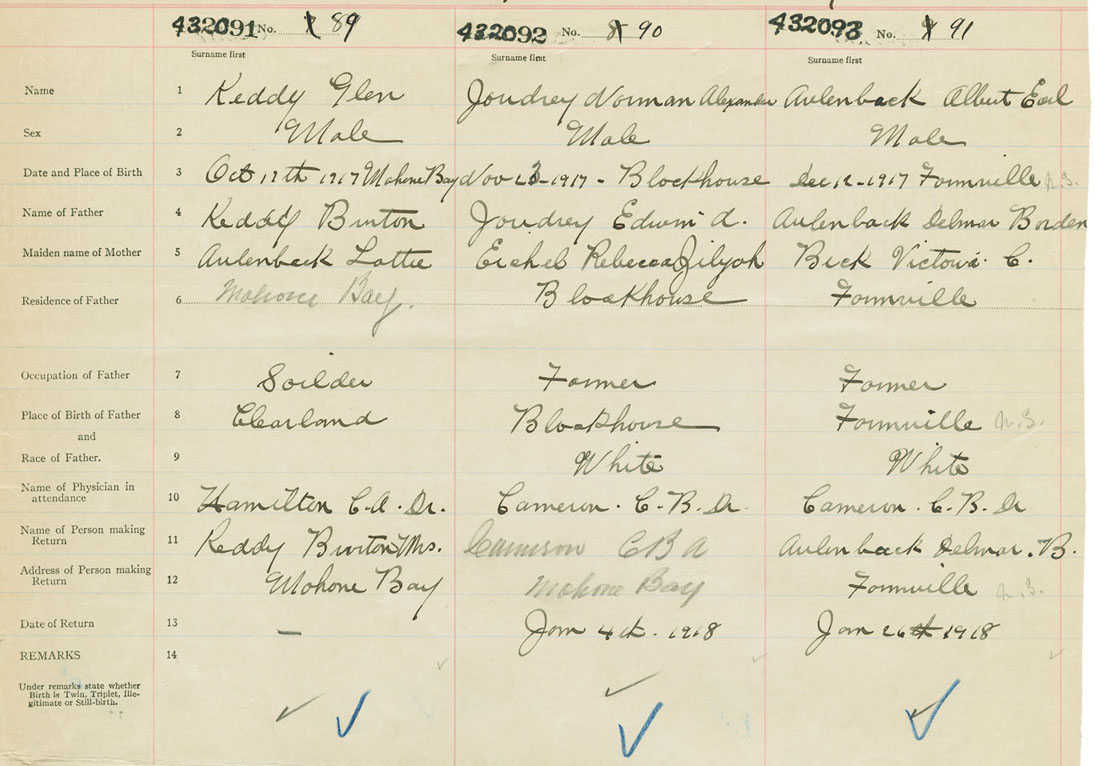 432091 No. 89 432092 No. 90 432093 No. 91
Surname first Surname first Surname first
Name 1 Keddy Glen Joudrey Norman Alexander Aulenback Albert Earl
Sex 2 Male Male Male
Date and Place of Birth 3 Oct 17th 1917 Mahone Bay Nov 23-1917 - Blockhouse Dec 12-1917 Farmville N.S.
Name of Father 4 Keddy Burton Joudrey Edwin A. Aulenback Delmar Borden
Maiden name of Mother 5 Aulenback Lottie Rebecca Beck Victoria C.
Residence of Father 6 Mahone Bay. Blockhouse Farmville
Occupation of Father 7 Soilder Farmer Farmer
Place of Birth of Father 8 Clearland Blockhouse Farmville N.S.
and
Race of Father. 9 White White
Name of Physician in
attendance 10 Hamilton C.A. Dr. Cameron. C.B. Dr Cameron. C.B. Dr
Name of Person making
Return 11 Keddy Burton Mrs. Cameron C B A Aulenback Delmar. B.
Address of Person making
Return 12 Mahone Bay Mahone Bay Farmville N.S.
Date of Return 13 — Jan 4th. 1918 Jan 26th 1918
REMARKS 14
Under remarks state whether
Birth is Twin, Triplet, Ille-
gitimate or Still-birth.